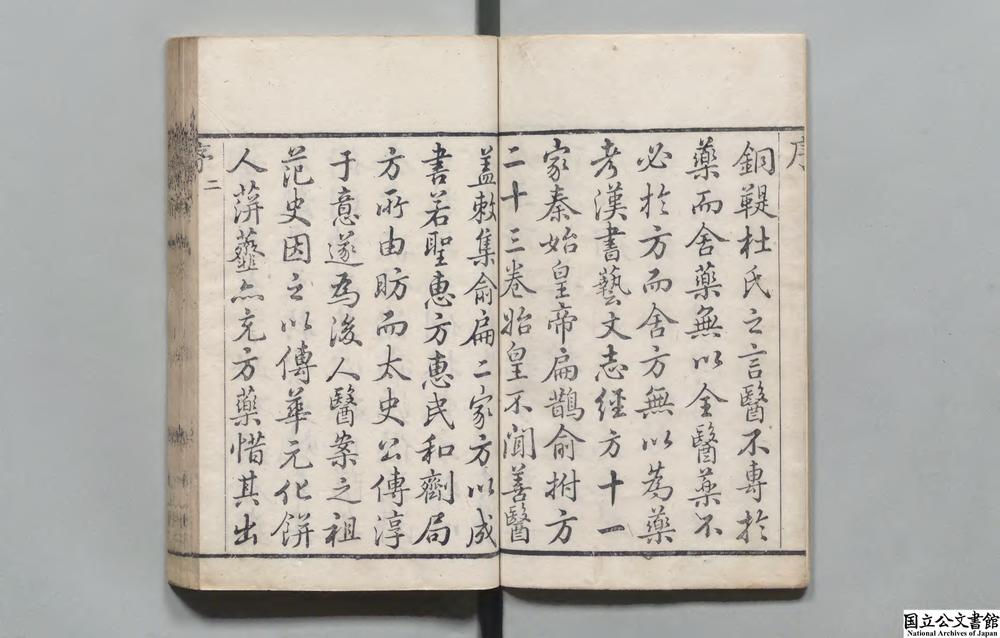 序
銅鞮杜氏之言醫不專於
藥而舍藥無以全醫藥不
必於方而舍方無以為藥
考漢書藝文志經方十一
家秦始皇帝扁鵲俞拊方
二十三卷始皇不聞善醫
蓋敕集俞扁二家方以成
書若聖惠方惠民和劑局
方所由昉而太史公傳淳
于意遂為後人醫案之祖
范史因之以傳華元化餅
人蓱虀亦充方藥惜其出
序 二
国立公文書館
National Archives of Japan